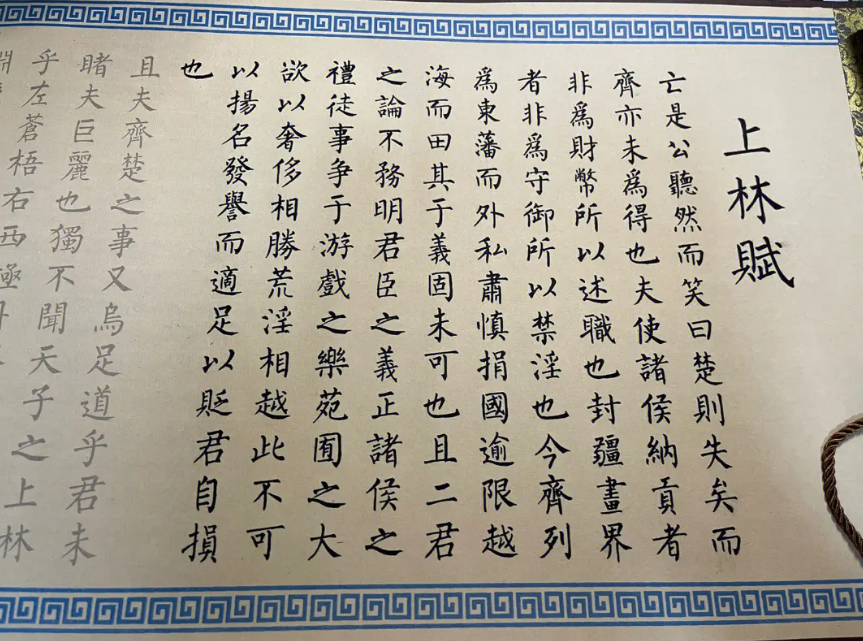 上林賦
亡是公聽然而笑曰楚則失矣而
齊亦未爲得也夫使諸侯納貢者
非爲財幣所以述職也封疆畫界
者非爲守御所以禁淫也今齊列
爲東藩而外私肅慎捐國逾限越
海而田其于義固未可也且二君
之論不務明君臣之義正諸侯之
禮徒事争于游戲之樂苑囿之大
欲以奢侈相勝荒淫相越此不可
以揚名發譽而適足以貶君自損
也
且夫齊楚之事又烏足道乎君未
睹夫巨麗也獨不聞天子之上林
乎左蒼梧右西極